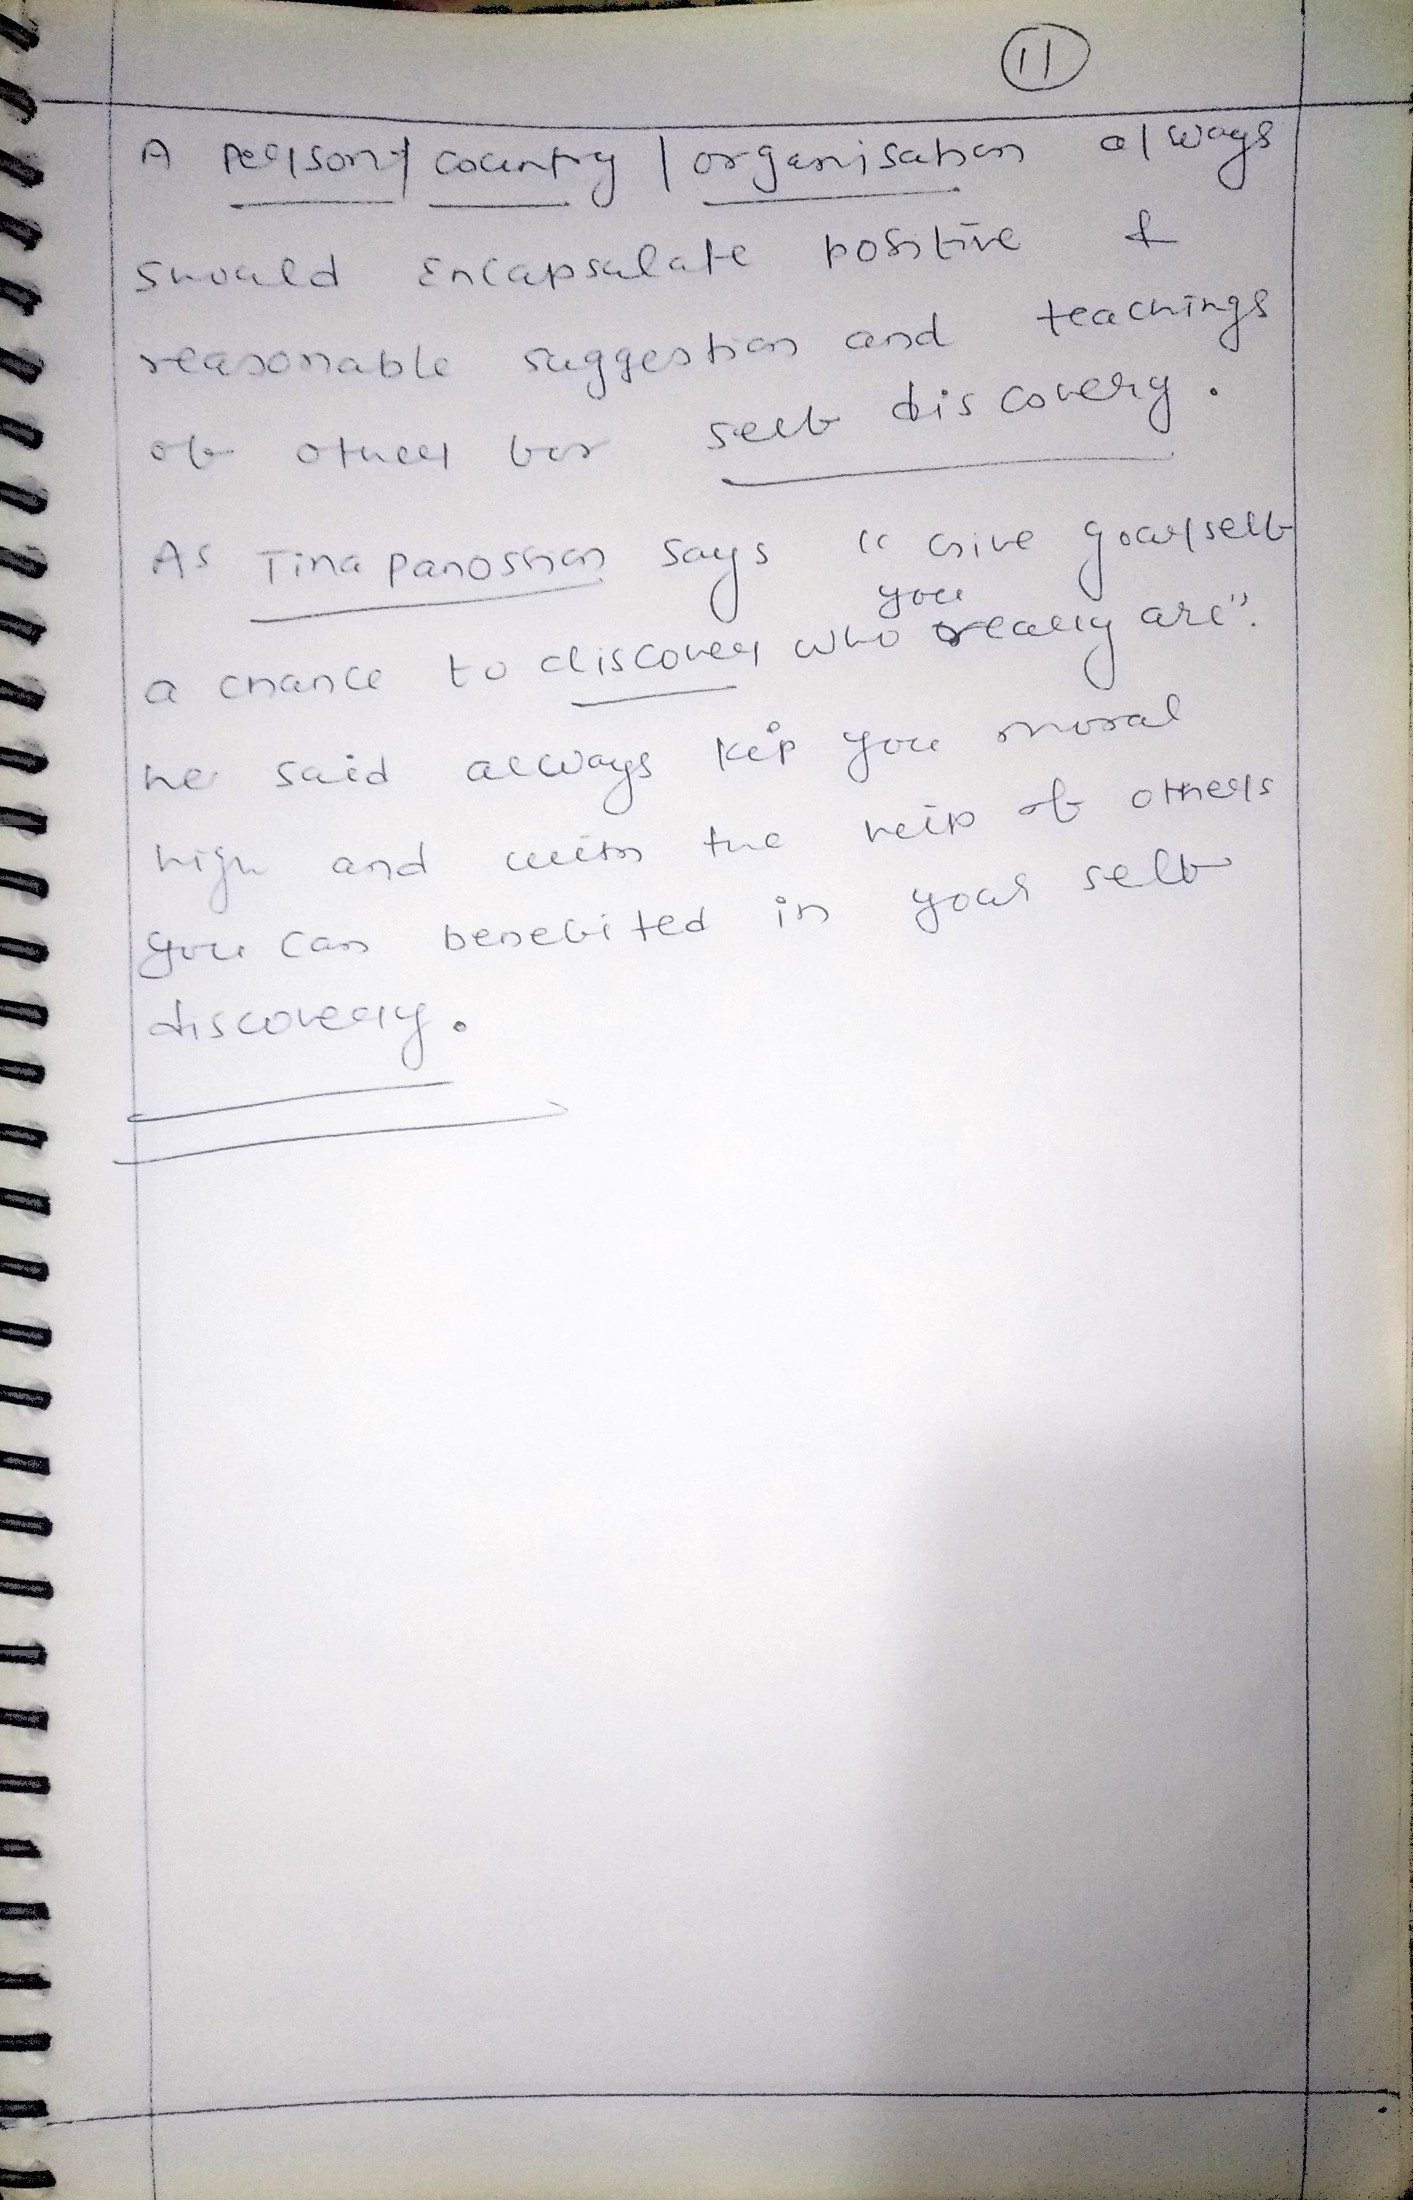 11
A person / country / organisation always
should Encapsulate positive &
reasonable suggestion and teachings
of other for self discovery.
As Tina panossian says "Give yourself
a chance to discover who you really are".
he said always kip you moral
high and with the help of others
you can benefited in your self
discovery.